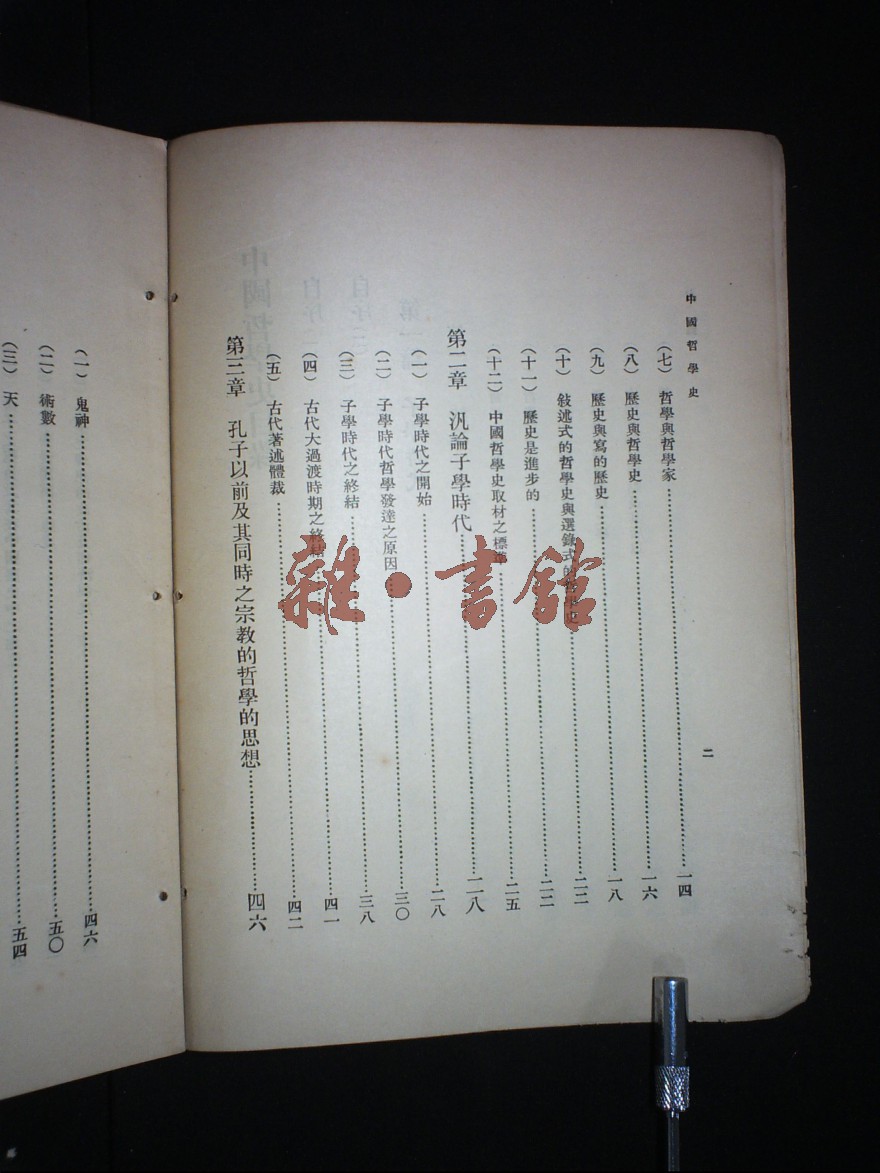 中國哲學史
二
(七) 哲學與哲學家……一四
(八) 歷史與哲學史……一六
(九) 歷史與寫的歷史……一八
(十) 敍述式的哲學史與選錄式的哲學史……二二
(十一) 歷史是進步的……二二
(十二) 中國哲學史取材之標準……二五
第二章 汎論子學時代……二八
(一) 子學時代之開始……二八
(二) 子學時代哲學發達之原因……三〇
(三) 子學時代之終結……三八
(四) 古代大過渡時期之終結……四一
(五) 古代著述體裁……四二
第三章 孔子以前及其同時之宗教的哲學的思想……四六
(一) 鬼神……四六
(二) 術數……五〇
(三) 天……五四
雜·書館